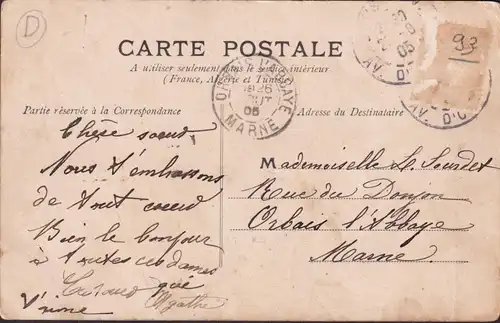 D
CARTE POSTALE
A utiliser seulement dans le service intérieur
(France, Algérie et Tunisie)
93
Partie réservée à la Correspondance
Adresse du Destinataire
L'ABBAYE
26
OUT
05
MARNE
05
Chère soeur
Nous t'embrassons
de tout coeur
Bien le bonjour
à toutes ces dames
Agathe
Mademoiselle L. Sourdet
Rue du Donjon
Orbais l'Abbaye
Marne